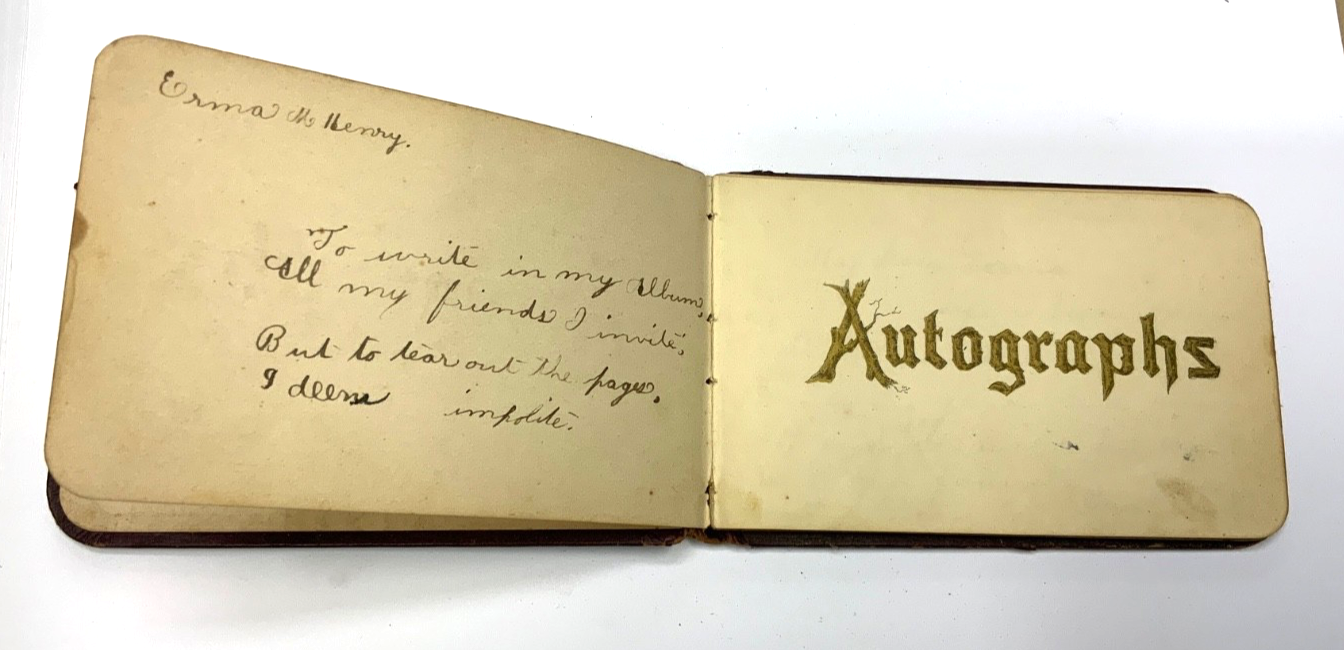 Erma Mc Henry.
To write in my Album,
All my friends I invite,
But to tear out the pages,
I deem impolite.
Autographs